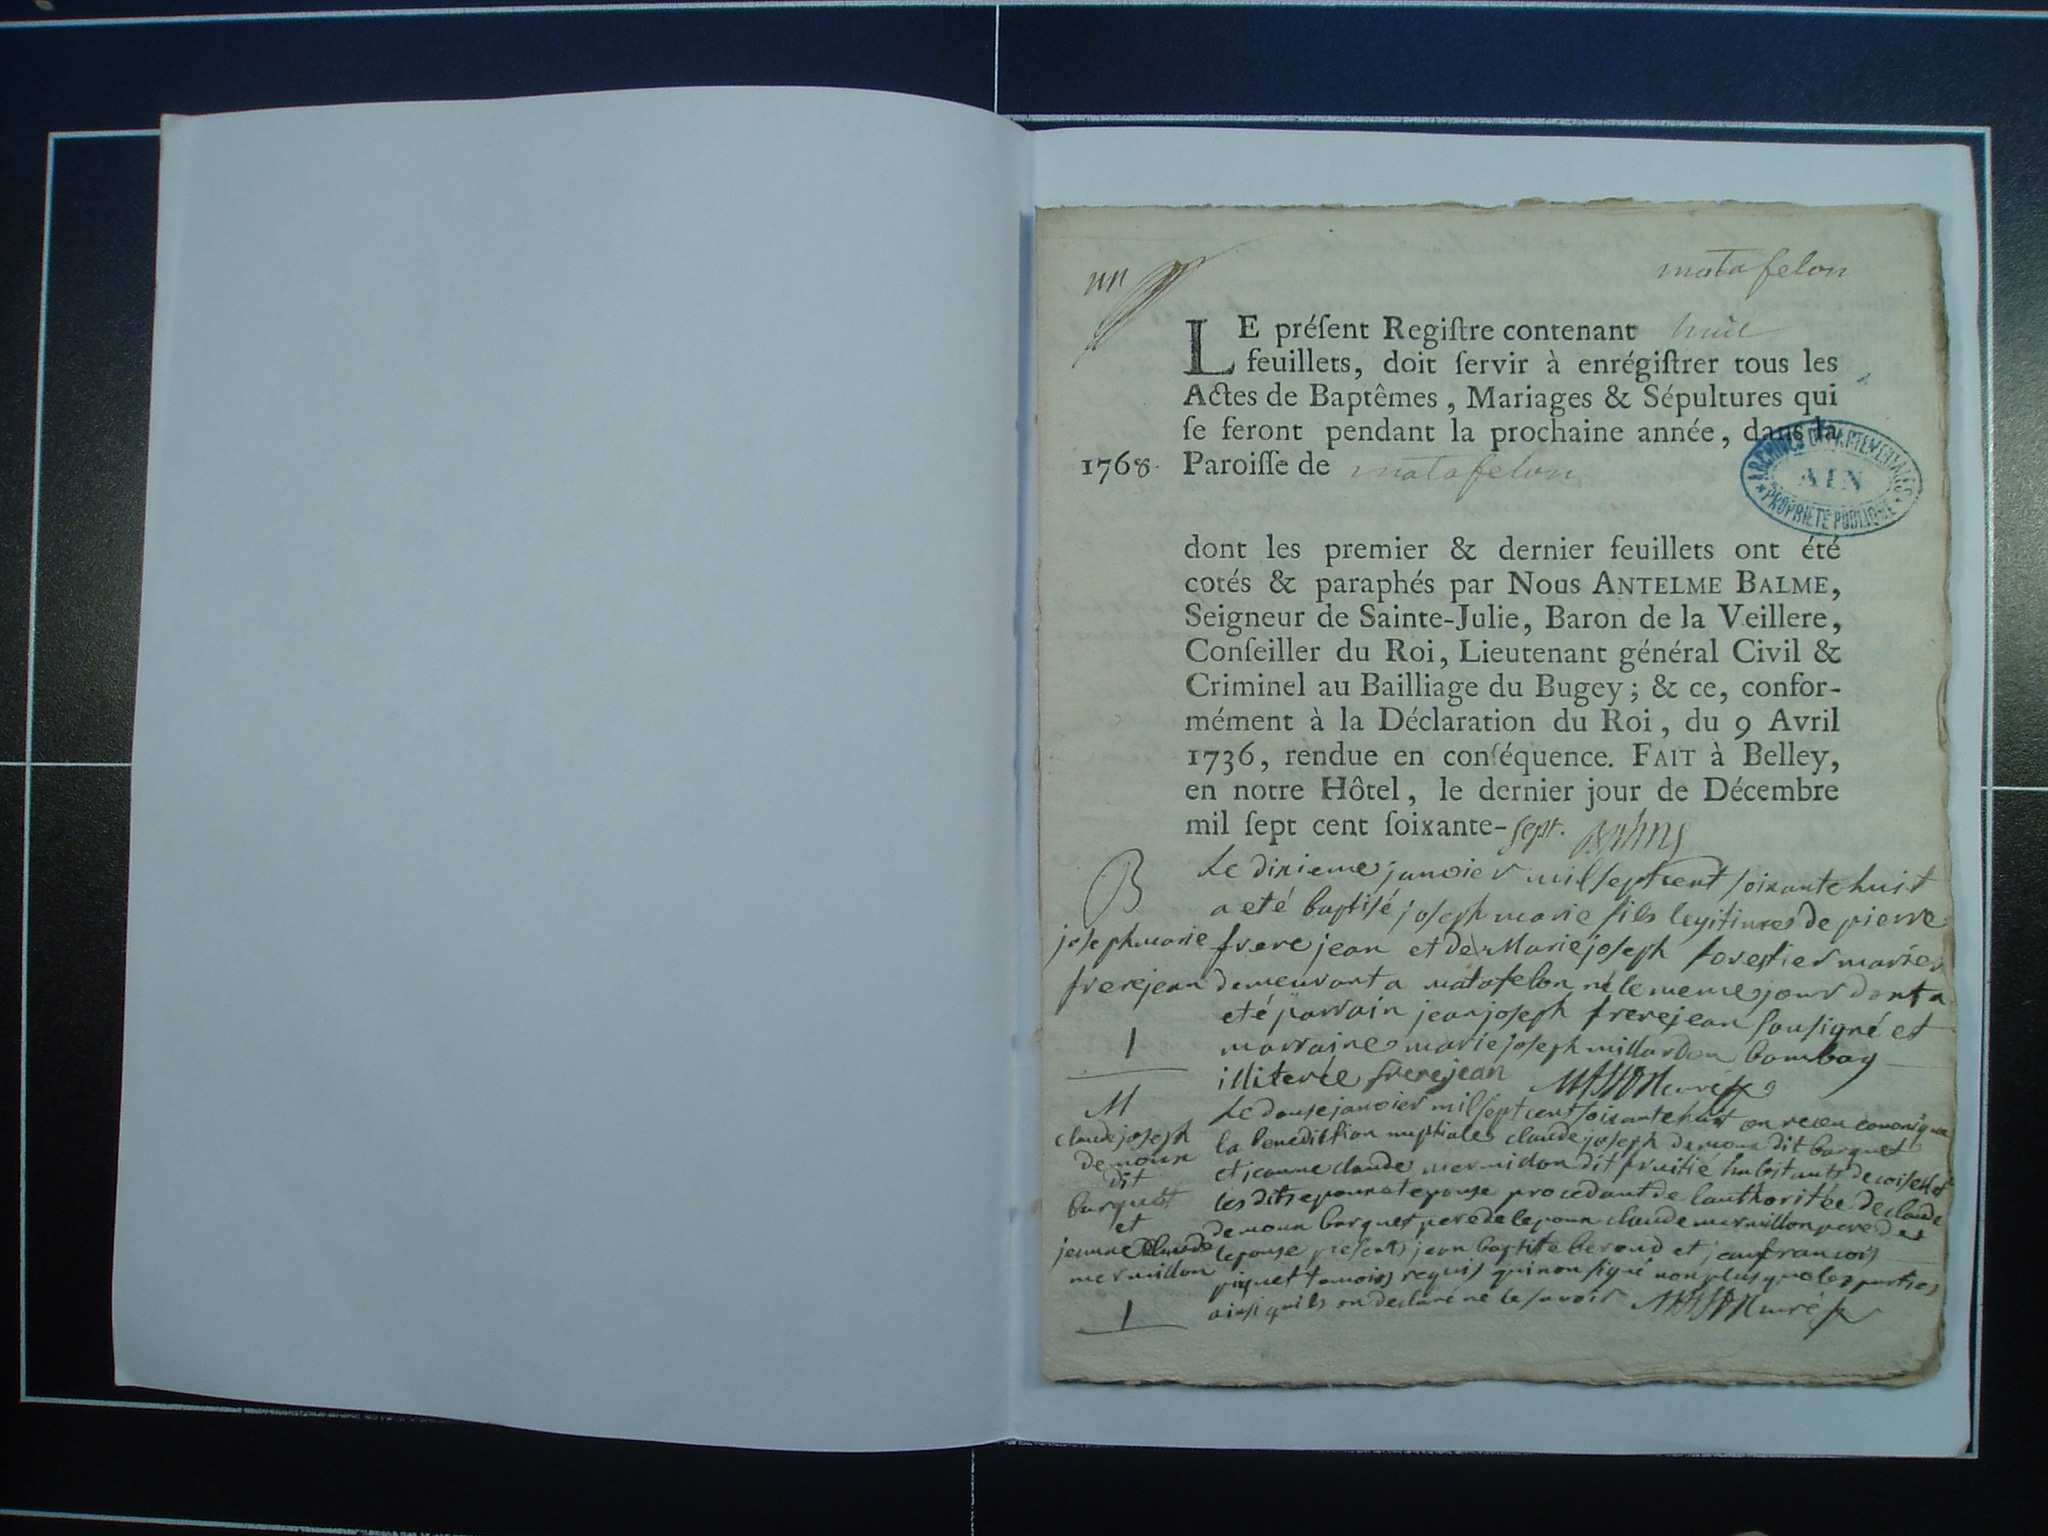 matafelon
un
LE préſent Regiſtre contenant huit
feuillets, doit ſervir à enrégiſtrer tous les
Actes de Baptêmes, Mariages & Sépultures qui
ſe feront pendant la prochaine année, dans la
1768. Paroiſſe de matafelon
ARCHIVES DEPARTEMENTALES
AIN
PROPRIETE PUBLIQUE
dont les premier & dernier feuillets ont été
cotés & paraphés par Nous ANTELME BALME,
Seigneur de Sainte-Julie, Baron de la Veillere,
Conſeiller du Roi, Lieutenant général Civil &
Criminel au Bailliage du Bugey; & ce, confor-
mément à la Déclaration du Roi, du 9 Avril
1736, rendue en conſéquence. FAIT à Belley,
en notre Hôtel, le dernier jour de Décembre
mil ſept cent ſoixante-sept.
B
joseph marie
frerejean
1
Le dixieme janvier mil sept cent soixante huit
a eté baptisé joseph marie fils legitimes de pierre
frere jean et de Marie joseph forestier mariés
demeurant a matafelon né le meme jour dont a
eté parrain jean joseph frerejean sousigné et
marraine marie joseph millardon bombay
illiterée frerejean MASSON curé
M
claude joseph
demoux
dit
barquet
et
jeanne claude
mermillon
1
Le douse janvier mil sept cent soixante huit on receu
la benediction nuptiales claude joseph demoux dit barquet
et jeanne claude mermidon dit fruitié habitants de coiselet
les dits epoux et epouse procedant de lauthoritée de claude
demoux barquet pere de lepoux claude mermillon pere de
lepouse presents jean baptiste beroud et jean francois
piquet temoins requis qui non signé non plus que les parties
ainsi quils on declaré ne le savoir MASSON curé